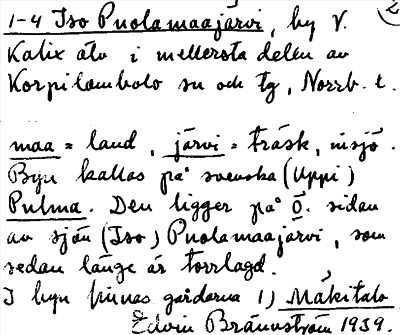 2
1-4 Iso Puolamaajärvi, by V.
Kalix älv i mellersta delen av
Korpilombolo sn och tg, Norrb. l.
maa = land, järvi = träsk, insjö.
Byn kallas på svenska (Uppi)
Pulma. Den ligger på Ö. sidan
av sjön (Iso) Puolamaajärvi, som
sedan länge är torrlagd.
I byn finnas gårdarna 1) Mäkitalo
Edvin Brännström 1939.